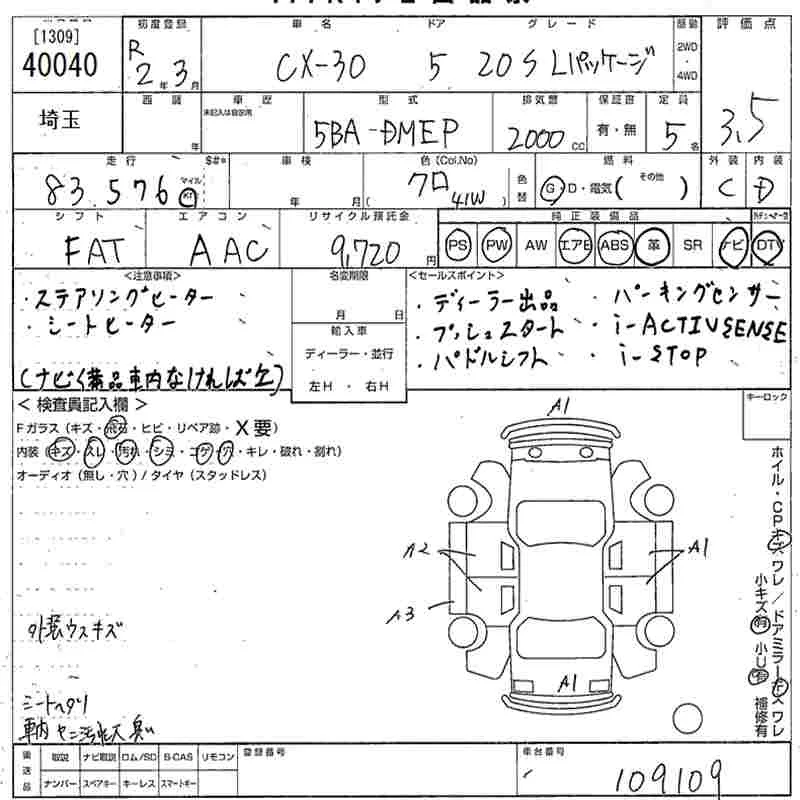 [1309]
40040
初度登録
R
2年 3月
車名
CX-30
ドア
5
グレード
20S Lパッケージ
2WD
4WD
評価点
3.5
埼玉
年
車歴
未記入は自家用
型式
5BA-DMEP
排気量
2000 CC
保証書
有・無
定員
5名
走行
83,576
マイル
Km
車検
年 月
色(Col.No)
クロ
41W
色替
燃料
G・D・電気( その他 )
外装
C
内装
D
シフト
FAT
エアコン
AAC
リサイクル預託金
9,720円
純正装備品
PS PW AW エアB ABS 革 SR ナビ DTV
<注意事項>
・ステアリングヒーター
・シートヒーター
(ナビ(備品車内なければ欠)
名変期限
月 日
輸入車
ディーラー・並行
左H・右H
<セールスポイント>
・ディーラー出品 ・パーキングセンサー
・プッシュスタート ・i-ACTIVSENSE
・パドルシフト ・i-STOP
<検査員記入欄>
Fガラス(キズ・飛石・ヒビ・リペア跡・X要)
内装(キズ・スレ・汚れ・シミ・コゲ・穴・キレ・破れ・割れ)
オーディオ(無し・穴)/タイヤ(スタッドレス)
外装ウスキズ
シートヘタリ
車内ヤニ汚れ大 臭い
A1
A2
A1
A3
A1
キーロック
ホイル・CPキズ ワレ/ドアミラーキズ ワレ
小キズ有 小U有 補修有
運送品
取説 ナビ取説 ロム/SD B-CAS リモコン
ナンバー スペアキー キーレス スマートキー
登録番号
車台番号
109109